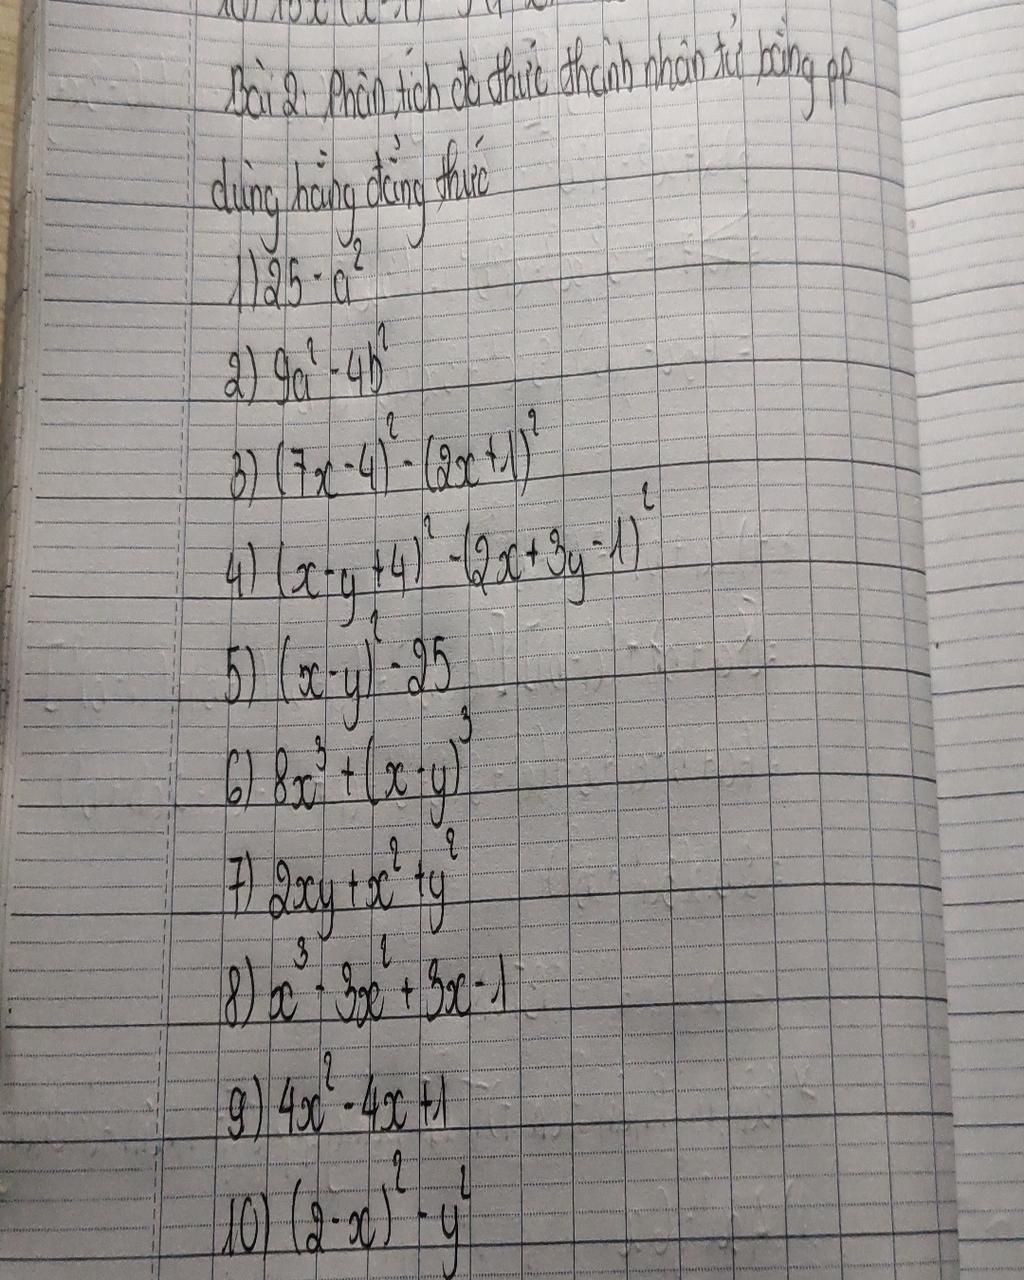 Bài 2: Phân tích đa thức thành nhân tử bằng pp
dùng hằng đẳng thức
1) 25 - a²
2) 9a² - 4b²
3) (7x - 4)² - (2x + 1)²
4) (x - y + 4)² - (2x + 3y - 1)²
5) (x - y)² - 25
6) 8x³ + (x - y)³
7) 2xy + x² + y²
8) x³ - 3x² + 3x - 1
9) 4x² - 4x + 1
10) (2 - x)² - y²